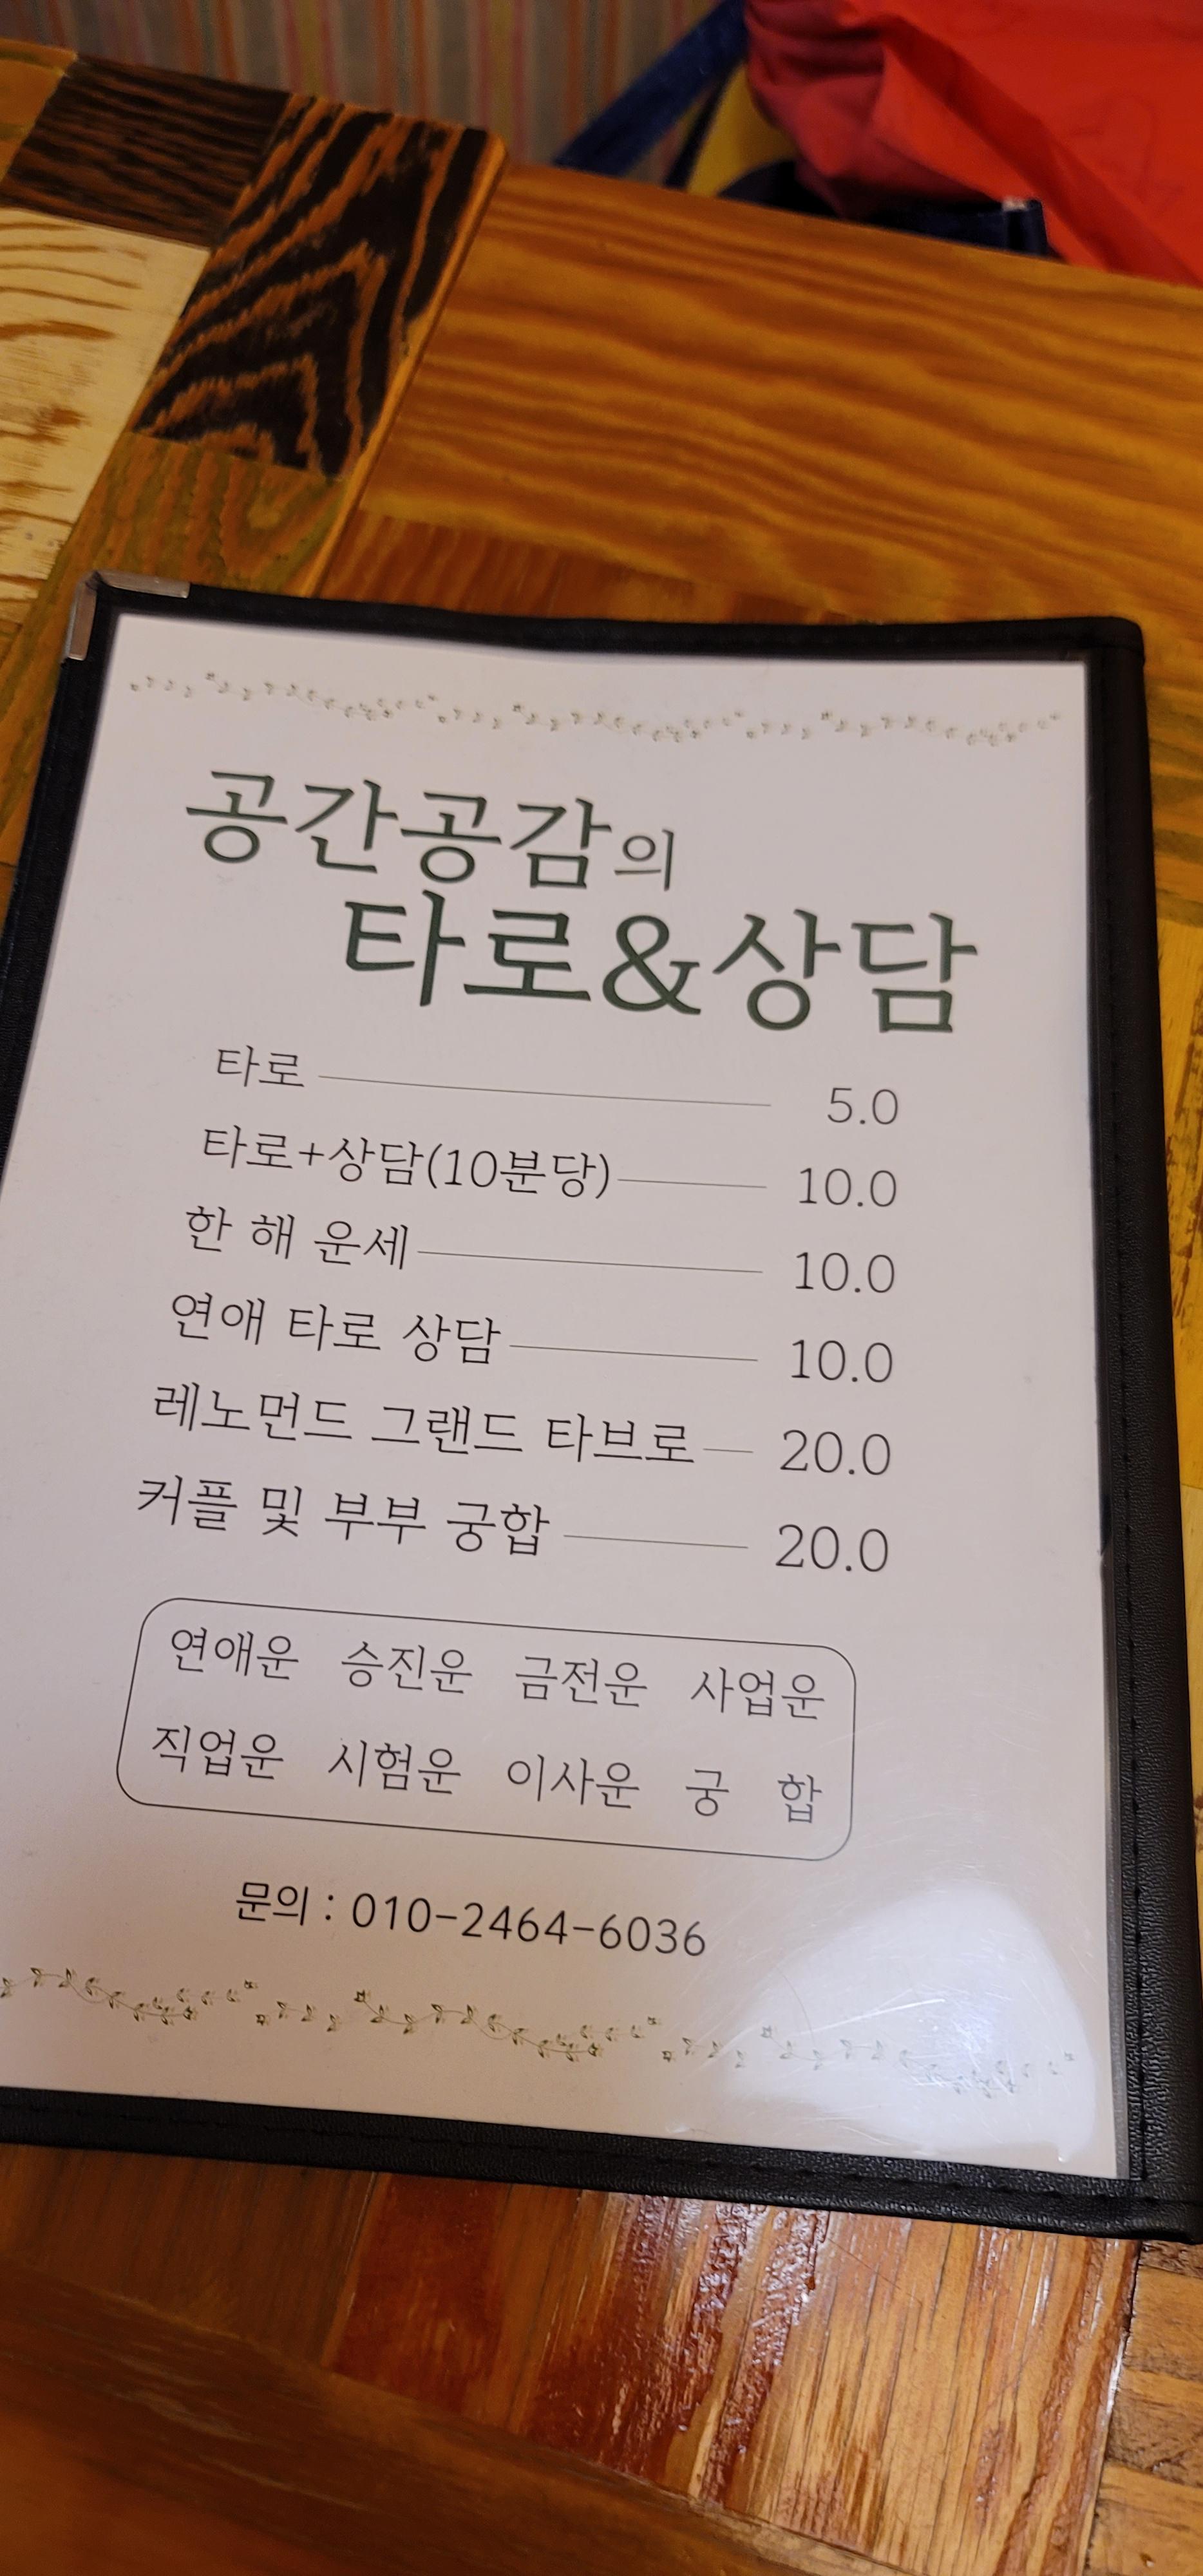 공간공감의
타로&상담
타로 5.0
타로+상담(10분당) 10.0
한 해 운세 10.0
연애 타로 상담 10.0
레노먼드 그랜드 타브로 20.0
커플 및 부부 궁합 20.0
연애운 승진운 금전운 사업운
직업운 시험운 이사운 궁 합
문의 : 010-2464-6036